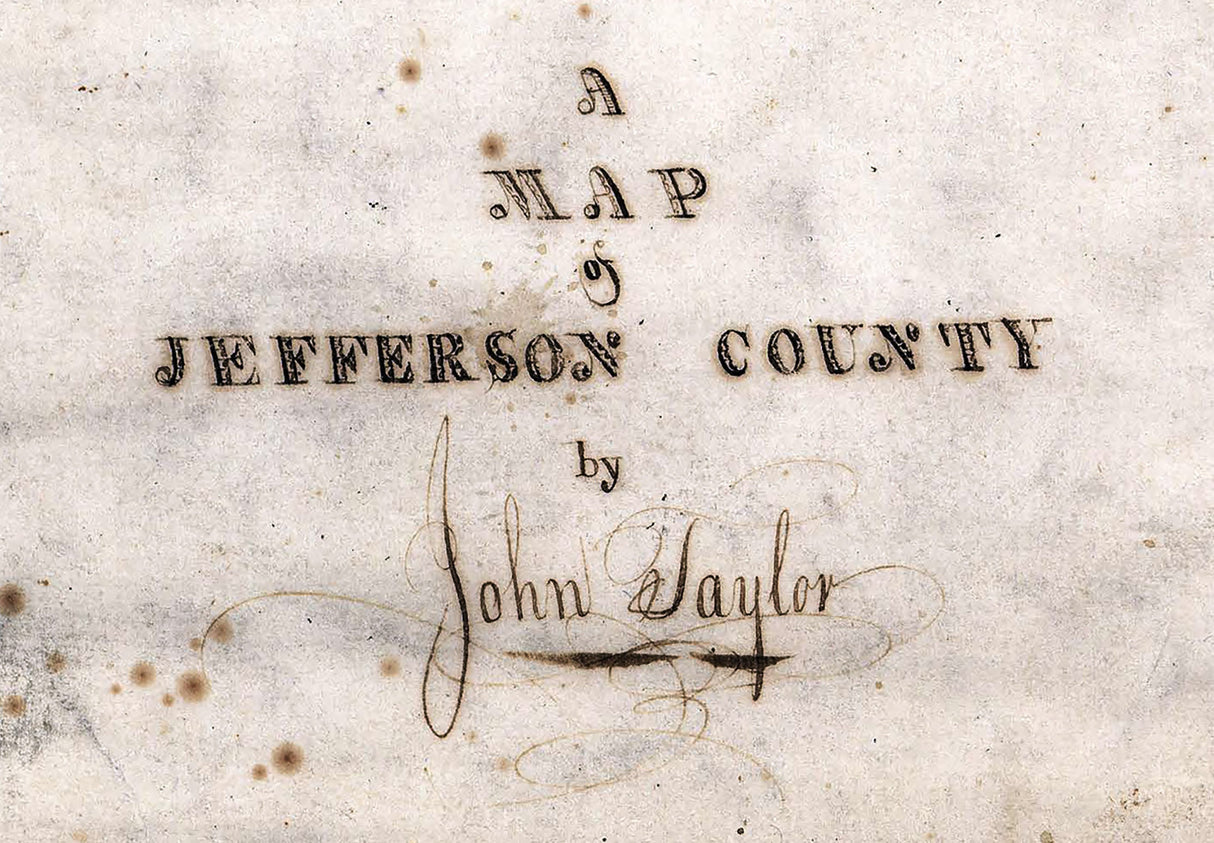 A
MAP
of
JEFFERSON COUNTY
by
John Taylor